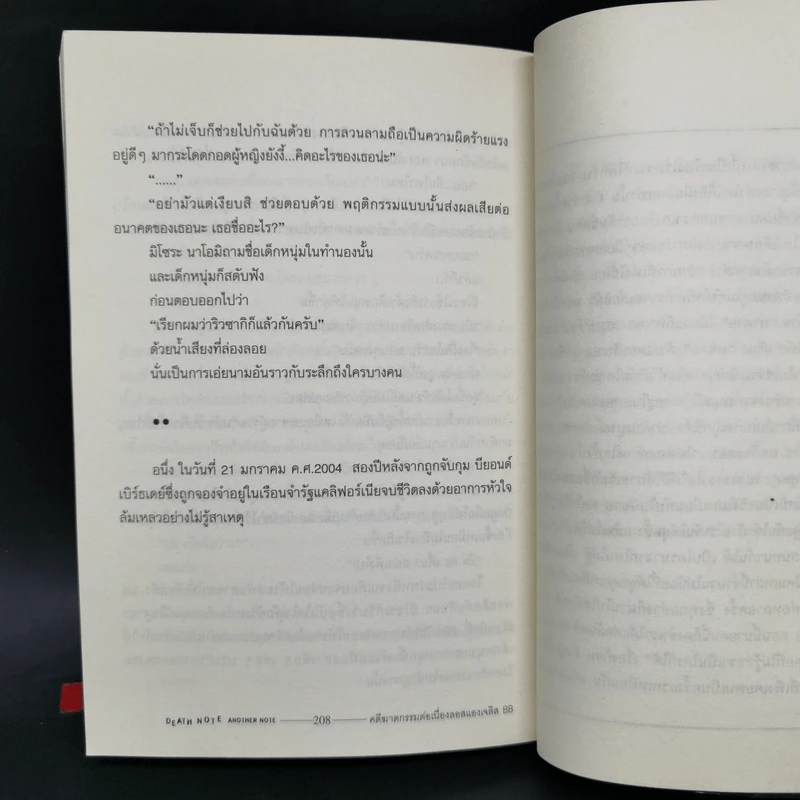 “ถ้าไม่เจ็บก็ช่วยไปกับฉันด้วย การลวนลามถือเป็นความผิดร้ายแรง
อยู่ดีๆ มากระโดดกอดผู้หญิงยังงี้...คิดอะไรของเธอน่ะ”
“......”
“อย่ามัวแต่เงียบสิ ช่วยตอบด้วย พฤติกรรมแบบนั้นส่งผลเสียต่อ
อนาคตของเธอนะ เธอชื่ออะไร?”
มิโซระ นาโอมิถามชื่อเด็กหนุ่มในทำนองนั้น
และเด็กหนุ่มก็สดับฟัง
ก่อนตอบออกไปว่า
“เรียกผมว่าริวซากิก็แล้วกันครับ”
ด้วยน้ำเสียงที่ล่องลอย
นั่นเป็นการเอ่ยนามอันราวกับระลึกถึงใครบางคน
●●
อนึ่ง ในวันที่ 21 มกราคม ค.ศ.2004 สองปีหลังจากถูกจับกุม บียอนด์
เบิร์ธเดย์ซึ่งถูกจองจำอยู่ในเรือนจำรัฐแคลิฟอร์เนียจบชีวิตลงด้วยอาการหัวใจ
ล้มเหลวอย่างไม่รู้สาเหตุ
DEATH NOTE ANOTHER NOTE 208 คดีฆาตกรรมต่อเนื่องลอสแองเจลิส BB